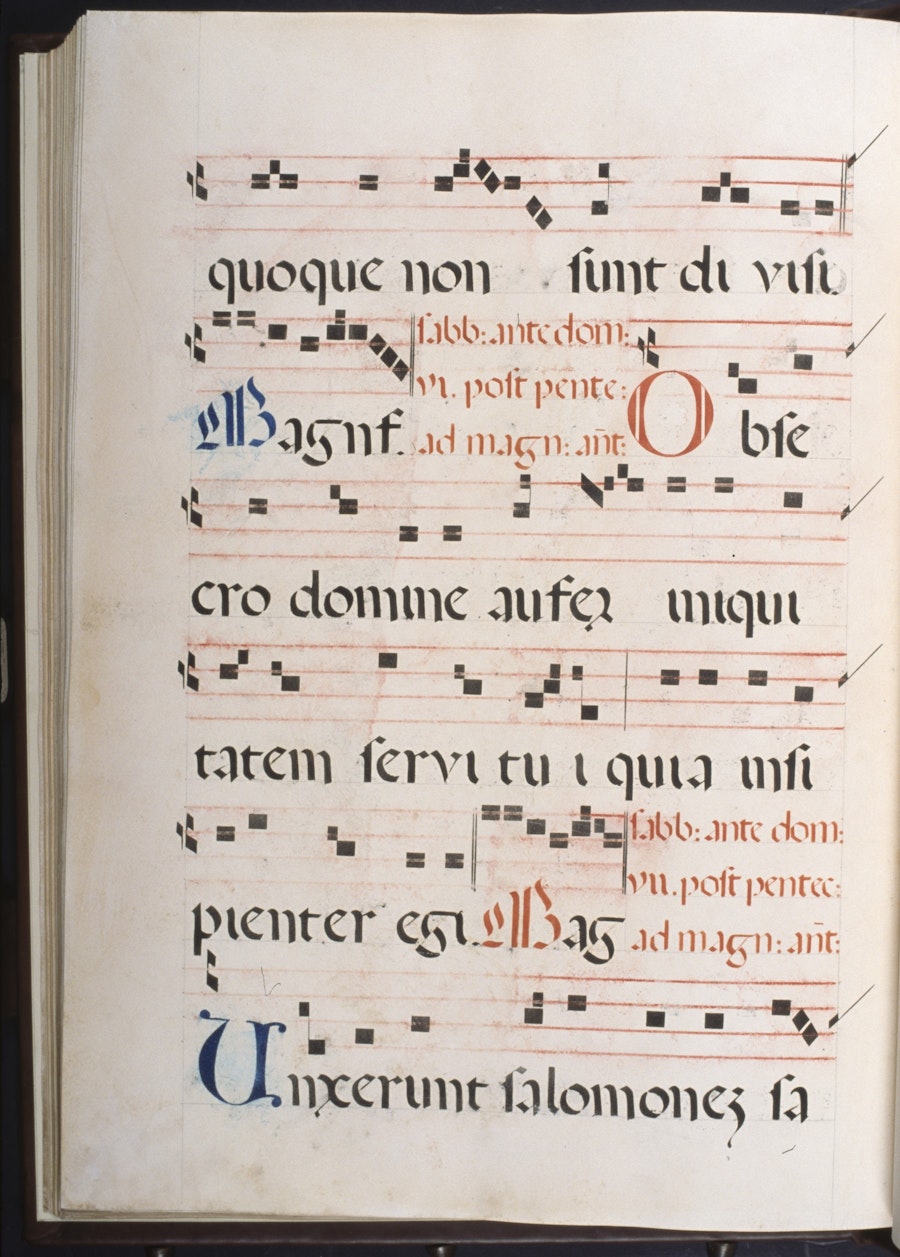 quoque non sunt di visi
Magnf. sabb: ante dom:
VI. post pente:
ad magn: añt: Obse
cro domine aufer iniqui
tatem servi tu i quia insi
pienter egi. Mag sabb: ante dom:
VII. post pentec:
ad magn: añt:
Unxerunt salomonez sa